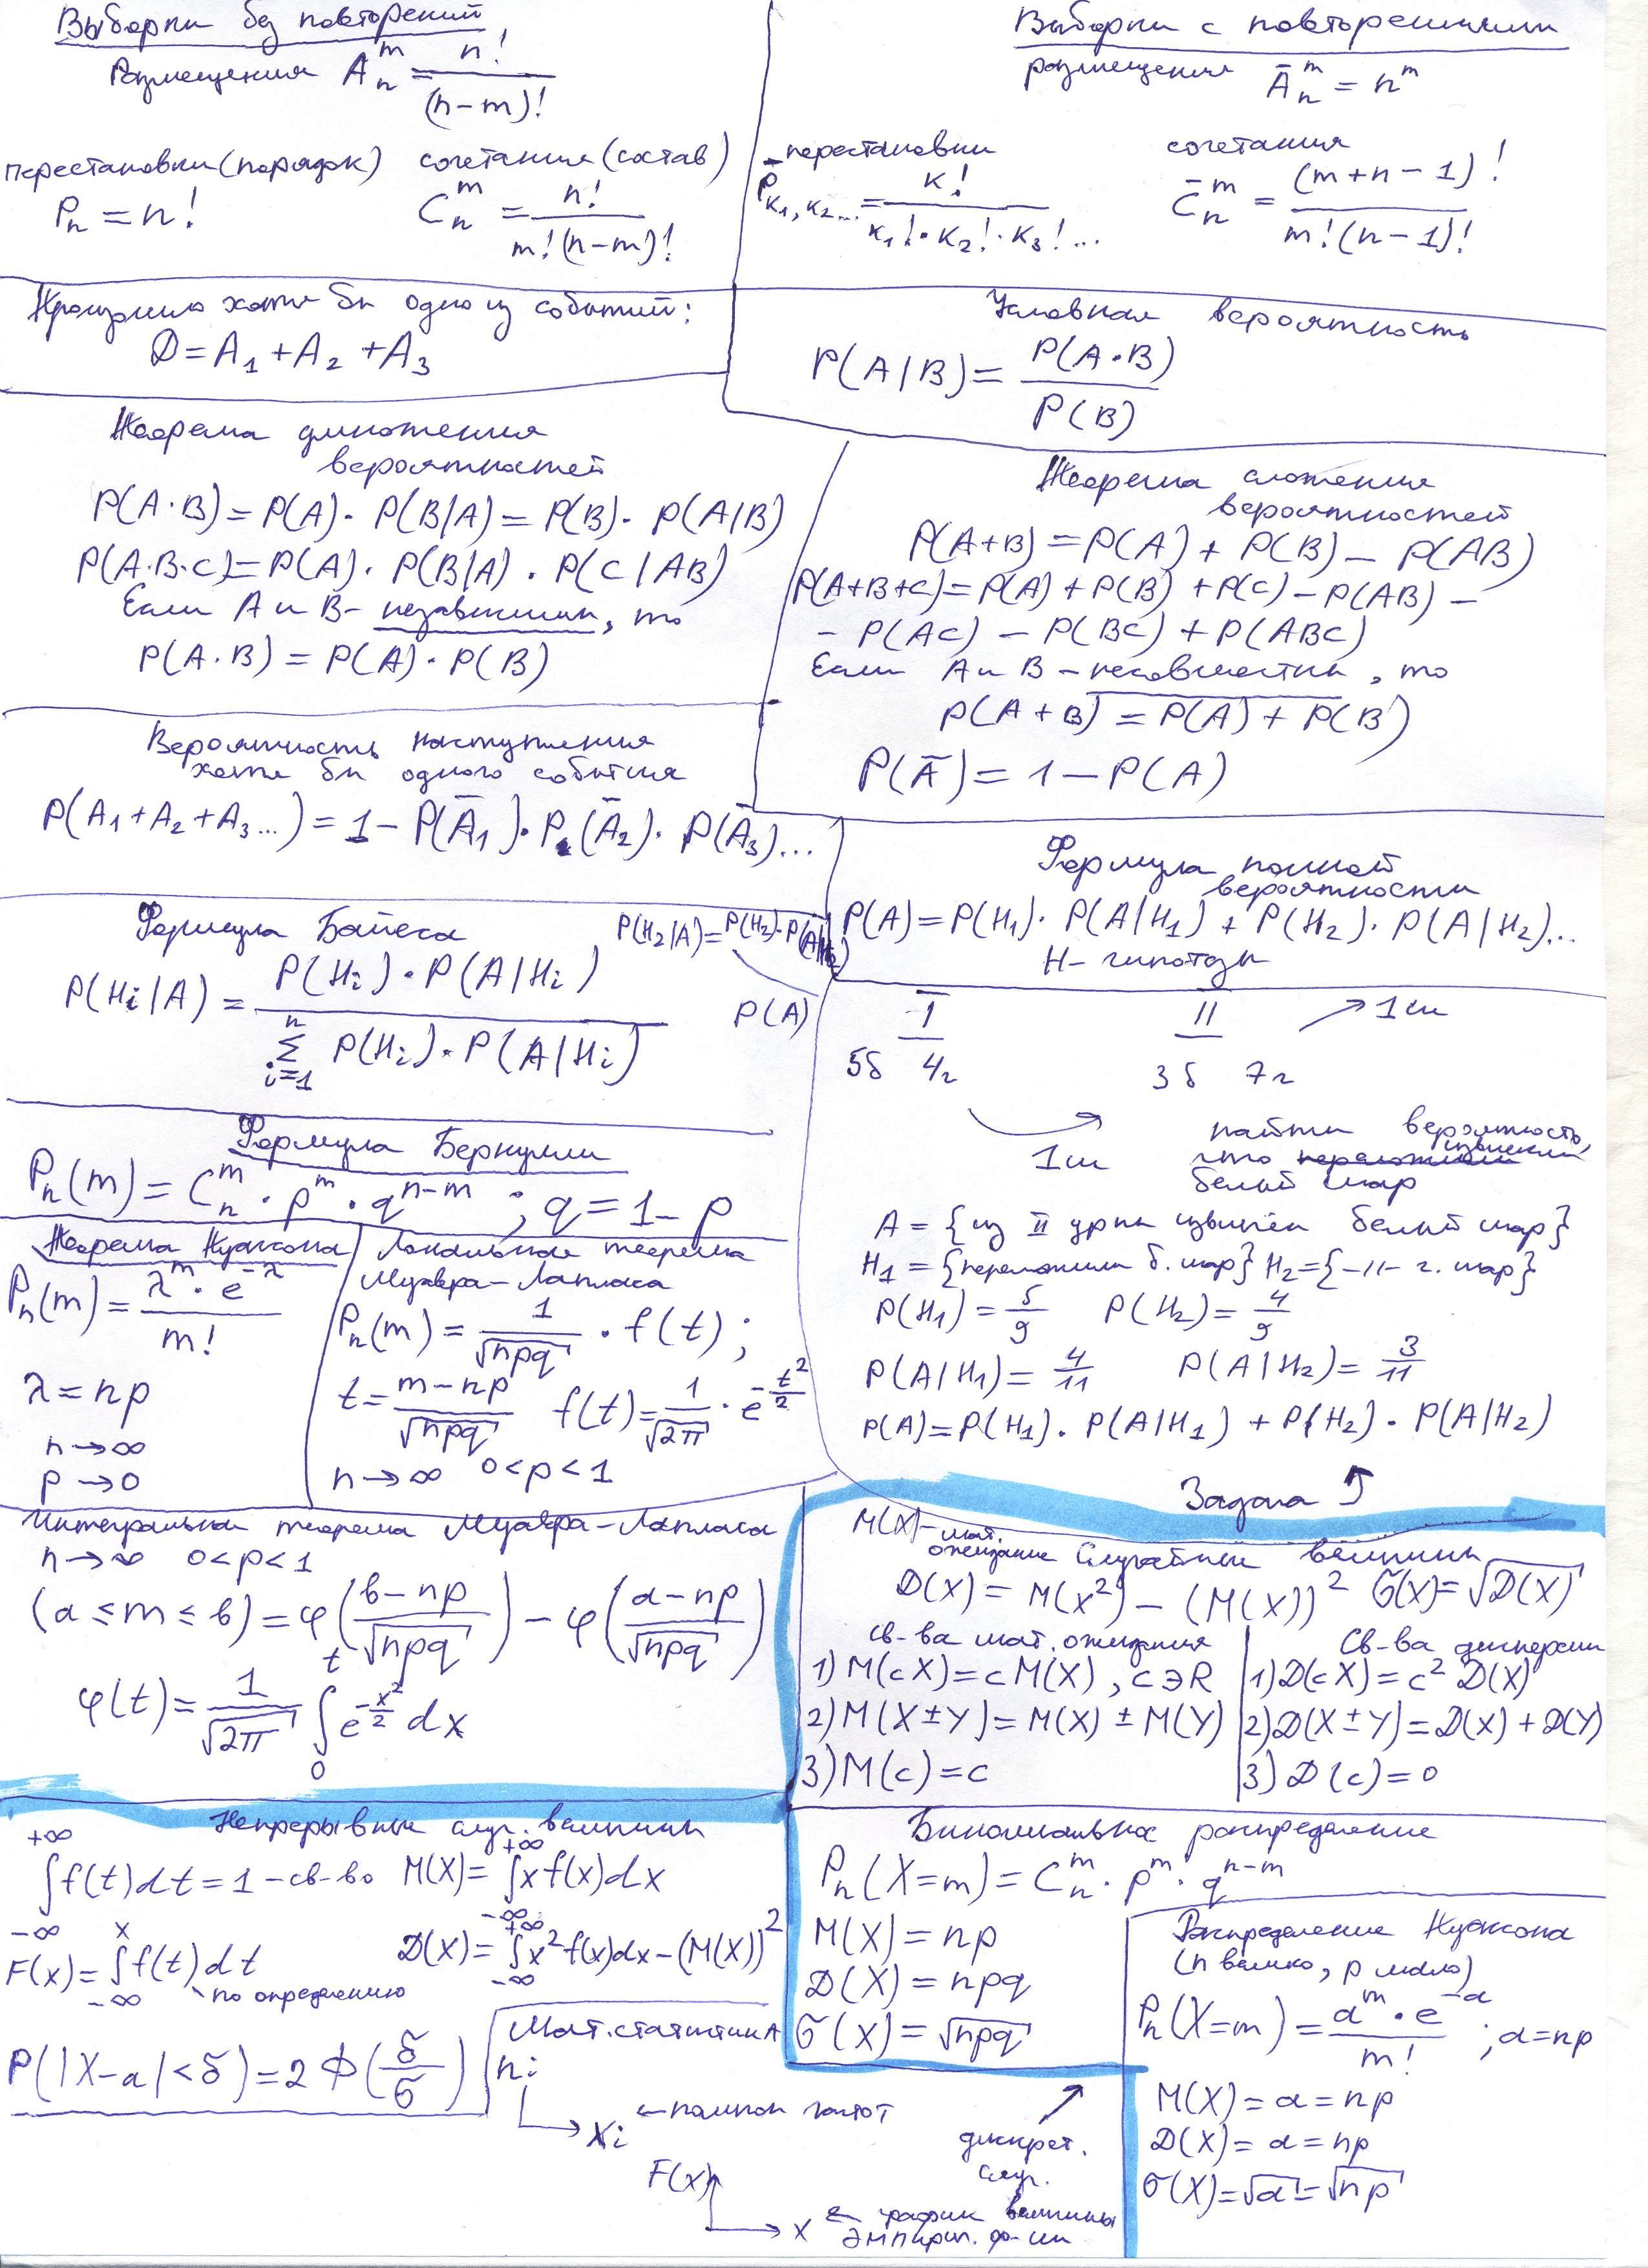 Выборки без повторений
Размещения A_n^m = n!/(n-m)!
перестановки (порядок) сочетания (состав)
P_n = n! C_n^m = n!/(m!(n-m)!)
Выборки с повторениями
размещения Ā_n^m = n^m
перестановки сочетания
P̄_{к1, к2...} = к!/(к1!·к2!·к3!...) C̄_n^m = (m+n-1)!/(m!(n-1)!)
Произошло хотя бы одно из событий:
D = A1 + A2 + A3
Условная вероятность
P(A|B) = P(A·B)/P(B)
Теорема умножения
вероятностей
P(A·B) = P(A)· P(B|A) = P(B)· P(A|B)
P(A·B·C) = P(A)· P(B|A) · P(C|AB)
Если A и B - независимы, то
P(A·B) = P(A)·P(B)
Теорема сложения
вероятностей
P(A+B) = P(A) + P(B) - P(AB)
P(A+B+C) = P(A) + P(B) + P(C) - P(AB) -
- P(AC) - P(BC) + P(ABC)
Если A и B - несовместны, то
P(A+B) = P(A) + P(B)
P(Ā) = 1 - P(A)
Вероятность наступления
хотя бы одного события
P(A1+A2+A3...) = 1 - P(Ā1)·P(Ā2)·P(Ā3)...
Формула полной
вероятности
P(A) = P(H1)· P(A|H1) + P(H2)· P(A|H2)...
H - гипотезы
Формула Байеса
P(Hi|A) = P(Hi)·P(A|Hi) / Σ_{i=1}^{n} P(Hi)·P(A|Hi)
P(H2|A) = P(H2)·P(A|H2) / P(A)
I II → 1ш
5б 4г 3б 7г
1ш
найти вероятность,
что извлекли
белый шар
A = {из II урны извлечён белый шар}
H1 = {переложили б. шар} H2 = {-11- г. шар}
P(H1) = 5/9 P(H2) = 4/9
P(A|H1) = 4/11 P(A|H2) = 3/11
P(A) = P(H1)· P(A|H1) + P(H2)· P(A|H2)
Задача ↑
Формула Бернулли
P_n(m) = C_n^m · p^m · q^{n-m} ; q = 1 - p
Теорема Пуассона
P_n(m) = λ^m · e^{-λ}/m!
λ = np
n → ∞
p → 0
Локальная теорема
Муавра-Лапласа
P_n(m) = 1/√npq · f(t);
t = (m-np)/√npq f(t) = 1/√2π · e^{-t²/2}
n → ∞ 0<p<1
Интегральная теорема Муавра-Лапласа
n → ∞ 0<p<1
(a ≤ m ≤ b) = φ((b-np)/√npq) - φ((a-np)/√npq)
φ(t) = 1/√2π ∫_0^t e^{-x²/2} dx
M(X) - мат. ожидание случайных величин
D(X) = M(X²) - (M(X))² σ(X) = √D(X)
св-ва мат. ожидания
1) M(cX) = cM(X), c ∋ R
2) M(X±Y) = M(X) ± M(Y)
3) M(c) = c
Св-ва дисперсии
1) D(cX) = c² D(X)
2) D(X±Y) = D(X) + D(Y)
3) D(c) = 0
Непрерывные случ. величины
∫_{-∞}^{+∞} f(t)dt = 1 - св-во M(X) = ∫_{-∞}^{+∞} x f(x)dx
F(x) = ∫_{-∞}^{x} f(t)dt D(X) = ∫_{-∞}^{+∞} x² f(x)dx - (M(X))²
по определению
P(|X-a|<δ) = 2Ф(δ/σ)
Мат. статистика
ni
xi ← полигон частот
F(x)
x ← график
эмпирич. ф-ии
Биномиальное распределение
P_n(X=m) = C_n^m · p^m · q^{n-m}
M(X) = np
D(X) = npq
σ(X) = √npq
дискрет.
случ.
величины
Распределение Пуассона
(n велико, p мало)
P_n(X=m) = a^m · e^{-a}/m! ; a = np
M(X) = a = np
D(X) = a = np
σ(X) = √a = √np